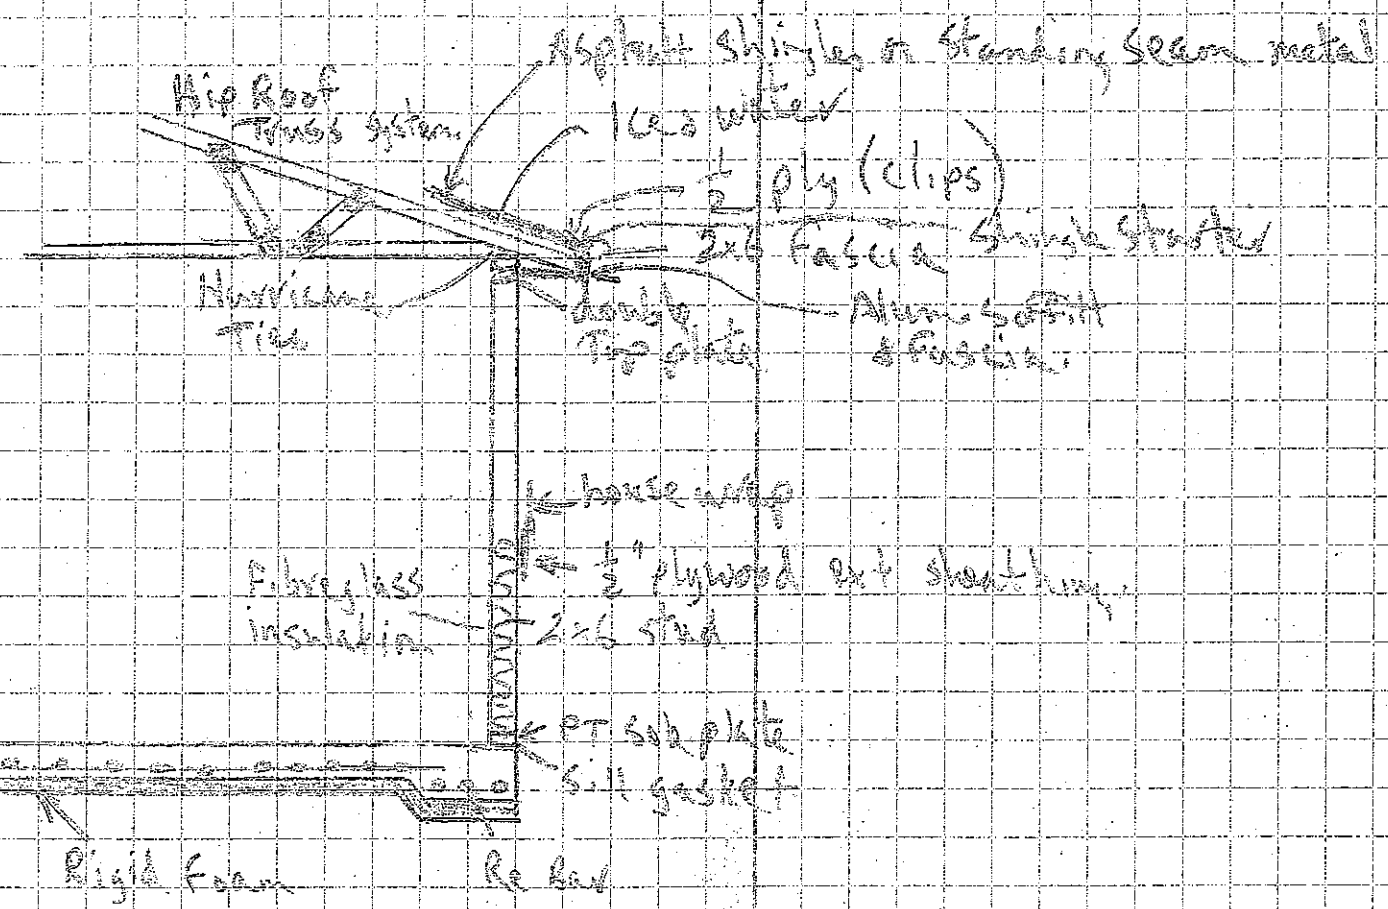 Asphalt Shingles or Standing Seam metal
Hip Roof
Truss system
Ice & water
1/2 ply (clips)
Shingle Starter
2x6 Fascia
Hurricane
Ties
double
Top plate
Alum Soffitt
& Fascia.
house wrap
1/2" plywood ext sheathing.
Fibreglass
insulation
2x6 stud
PT Sole plate
Sill gasket
Rigid Foam
Re Bar